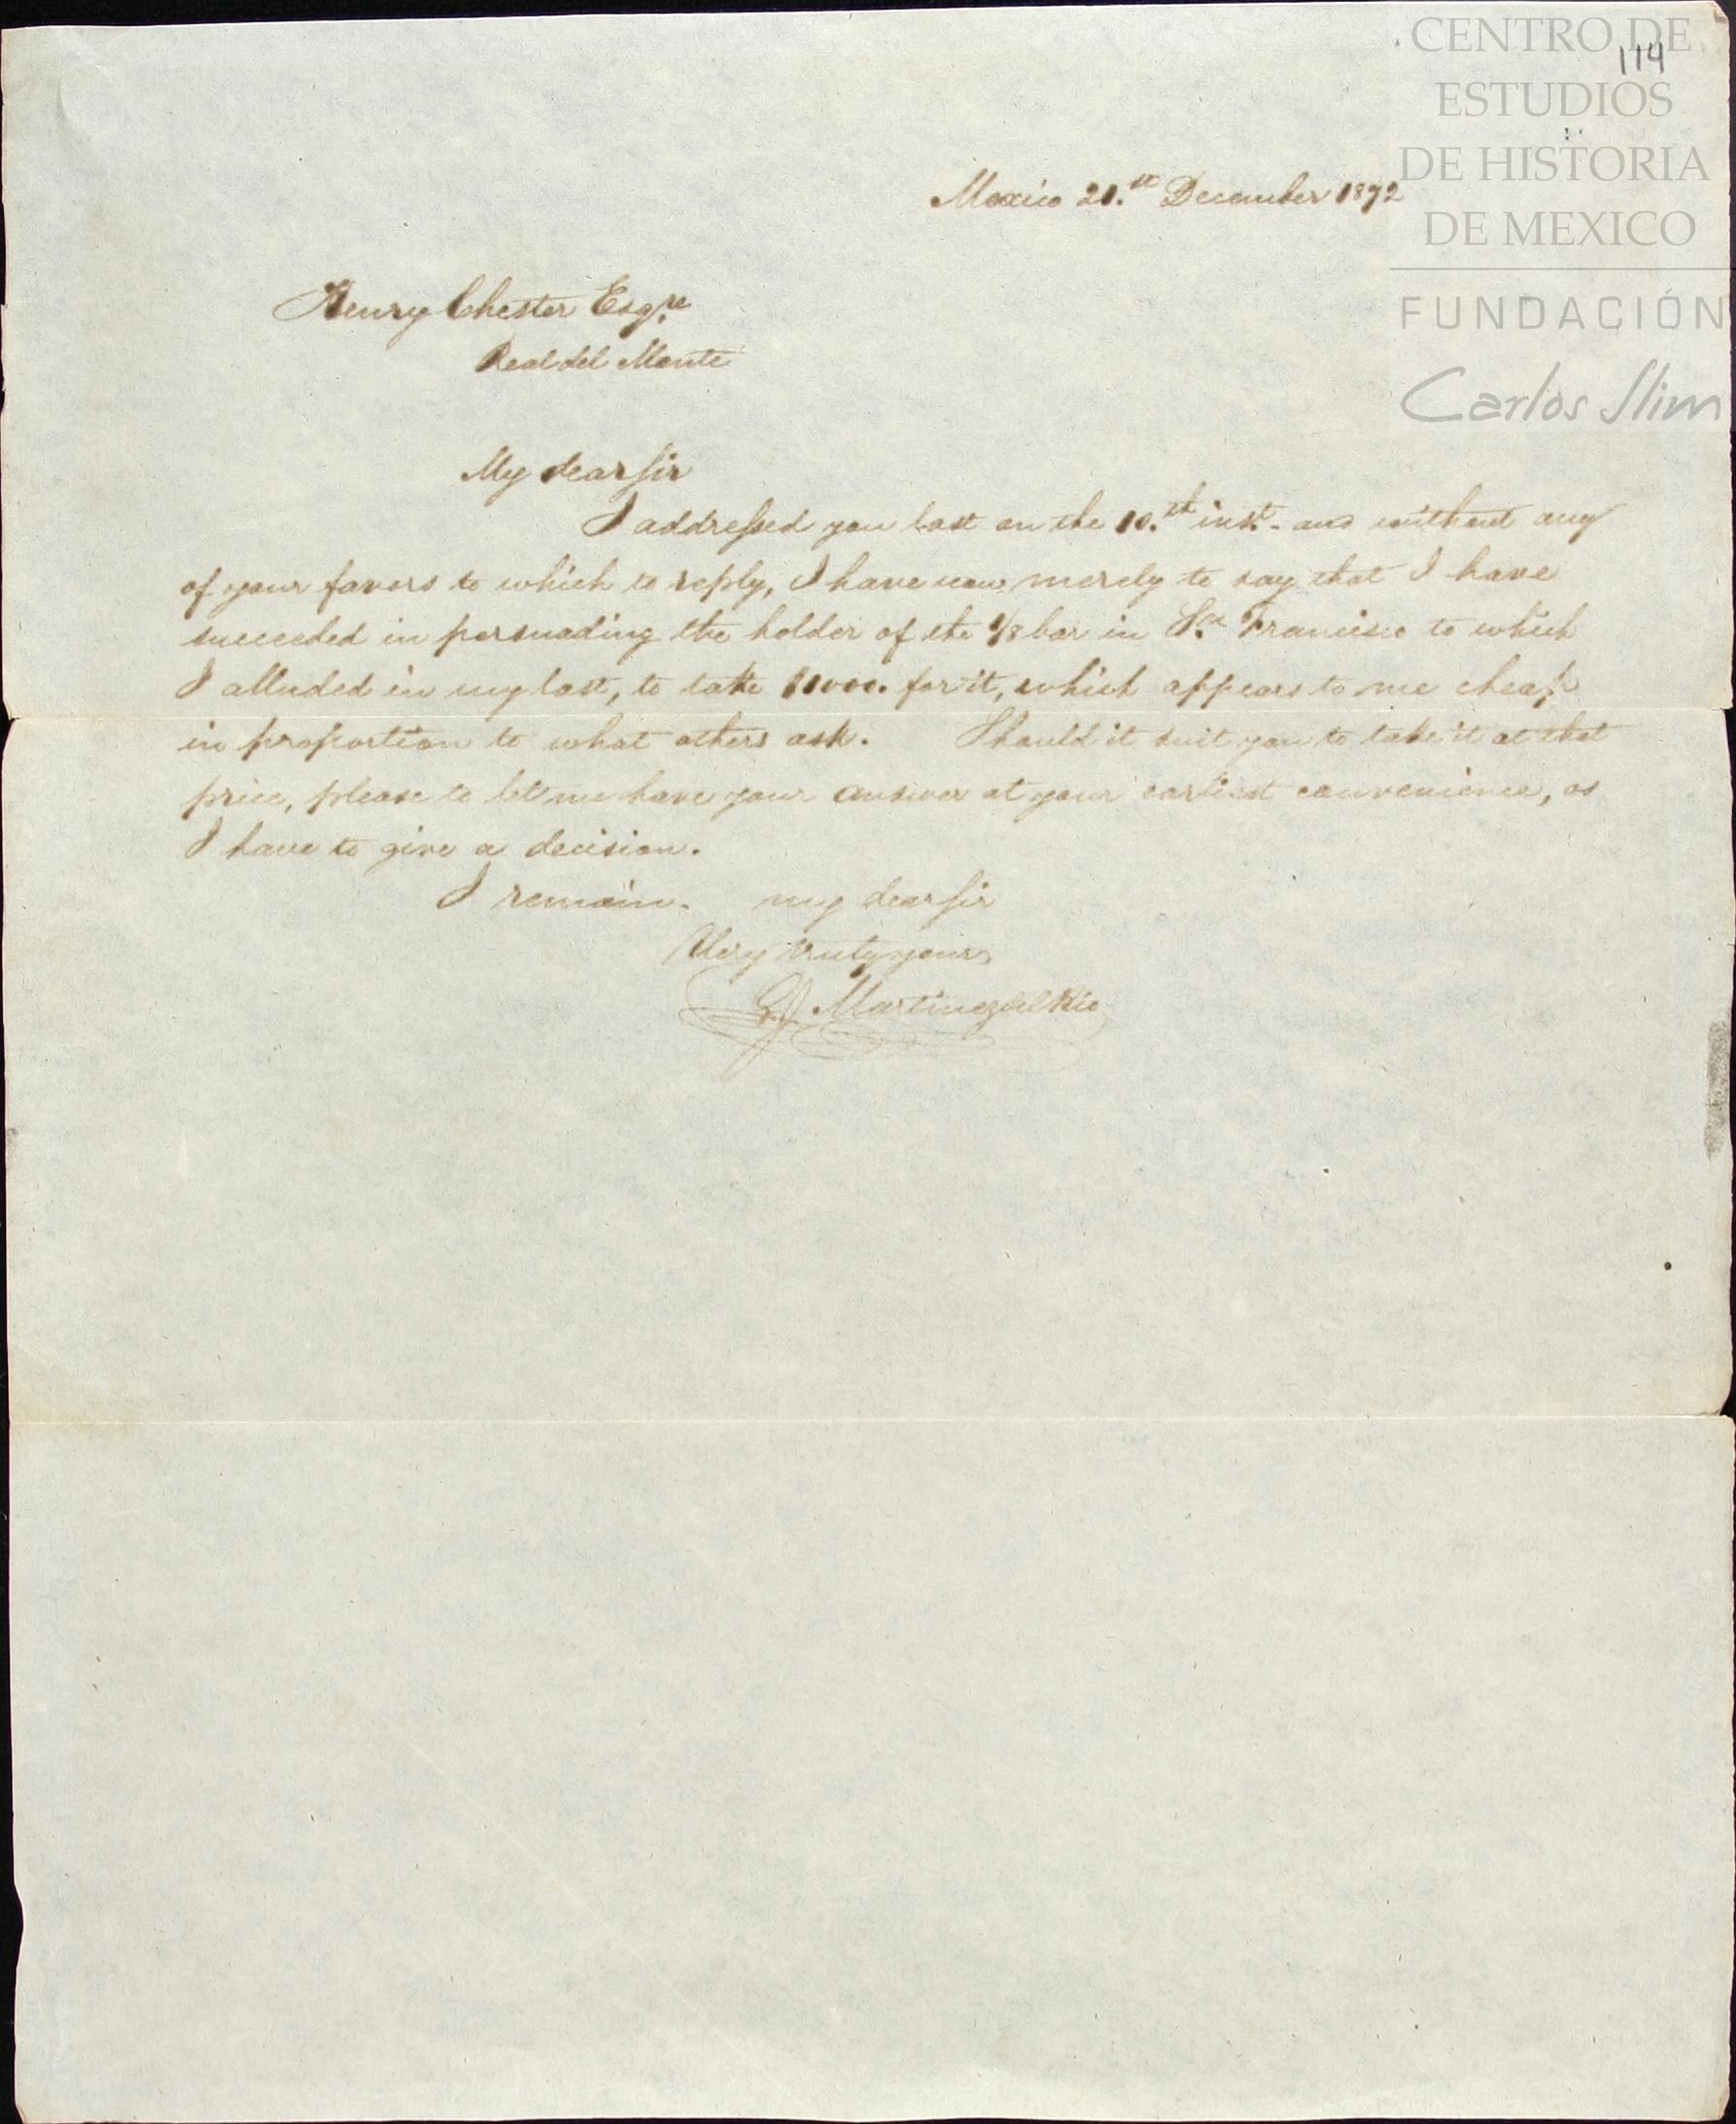 CENTRO DE
ESTUDIOS
DE HISTORIA
DE MEXICO
FUNDACIÓN
Carlos Slim
114
Mexico 21.st December 1872
Henry Chester Esqre
Real del Monte
My dear Sir
I addressed you last on the 10.th inst. and without any
of your favors to which to reply, I have now merely to say that I have
succeeded in persuading the holder of the 1/8 bar in Sn. Francisco to which
I alluded in my last, to take $1000. for it, which appears to me cheap
in proportion to what others ask. Should it suit you to take it at that
price, please to let me have your answer at your earliest convenience, as
I have to give a decision.
I remain. my dear Sir
Very truly yours
Martinez del Rio